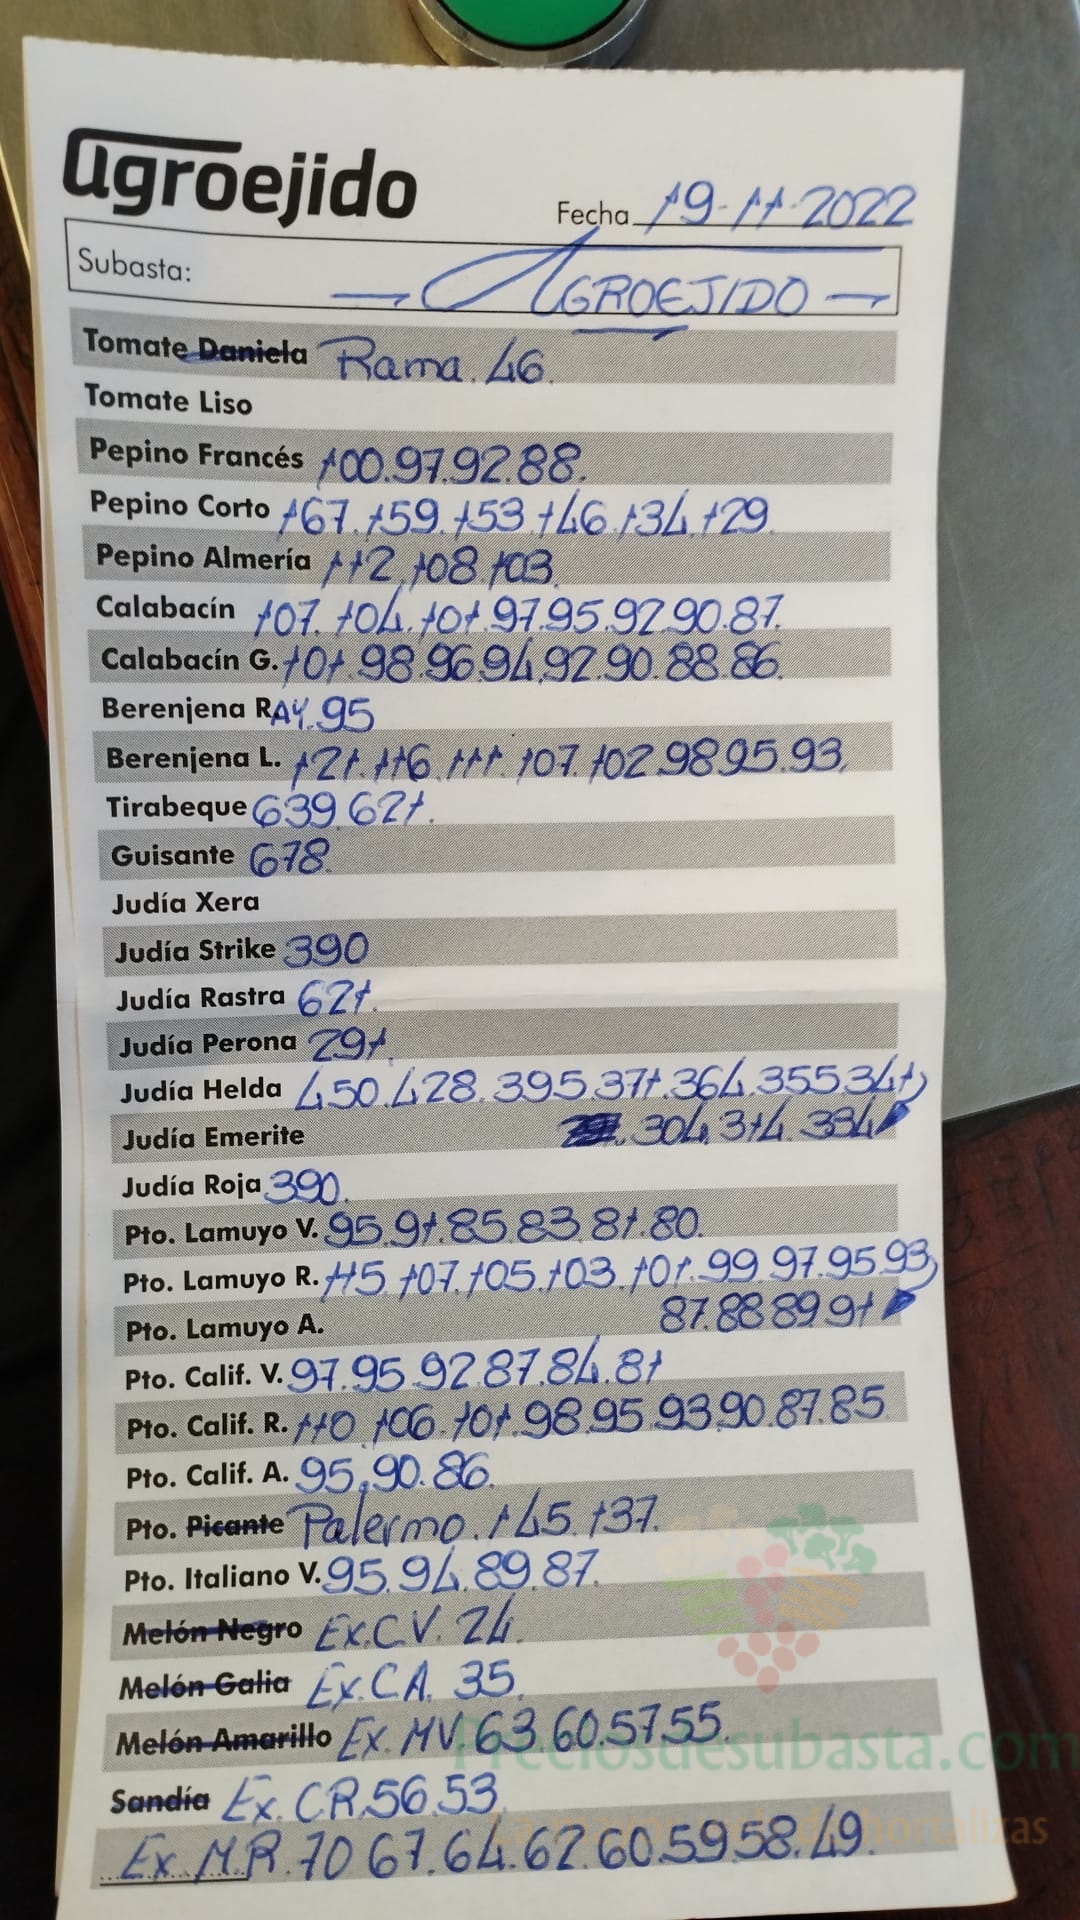 agroejido
Fecha 19-11-2022
Subasta: AGROEJIDO
Tomate Daniela Rama. 46.
Tomate Liso
Pepino Francés 100.97.92.88.
Pepino Corto 167.159.153.146.134.129.
Pepino Almería 112.108.103.
Calabacín 107.104.101.97.95.92.90.87.
Calabacín G. 101.98.96.94.92.90.88.86.
Berenjena RAY.95
Berenjena L. 121.116.111.107.102.98.95.93.
Tirabeque 639.621.
Guisante 678.
Judía Xera
Judía Strike 390
Judía Rastra 621.
Judía Perona 291.
Judía Helda 450.428.395.371.364.355.341
Judía Emerite 304.314.334
Judía Roja 390.
Pto. Lamuyo V. 95.91.85.83.81.80.
Pto. Lamuyo R. 115.107.105.103.101.99.97.95.93
Pto. Lamuyo A. 87.88.89.91
Pto. Calif. V. 97.95.92.87.84.81
Pto. Calif. R. 110.106.101.98.95.93.90.87.85
Pto. Calif. A. 95.90.86.
Pto. Picante Palermo. 145.137.
Pto. Italiano V. 95.94.89.87.
Melón Negro Ex.C.V. 24.
Melón Galia Ex.C.A. 35.
Melón Amarillo Ex. M.V. 63.60.57.55.
Preciosdesubasta.com
Sandía Ex. C.R. 56.53.
hortalizas
Ex. M.R. 70.67.64.62.60.59.58.49.